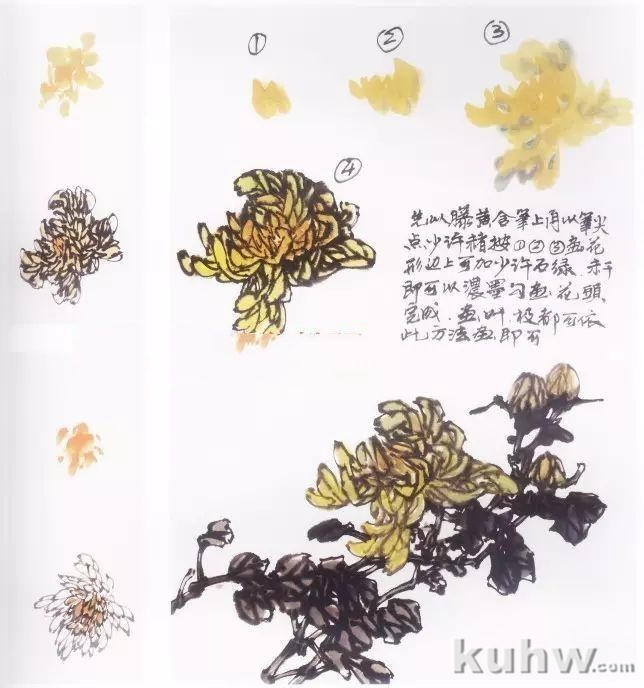 ①
②
③
④
先以藤黄含筆上再以筆尖
点少许赭按①②③画花
形边上可加少许石绿.未干
即可以濃墨勾画花頭
完成.画叶.枝都可依
此方法画即可
kuhw.com